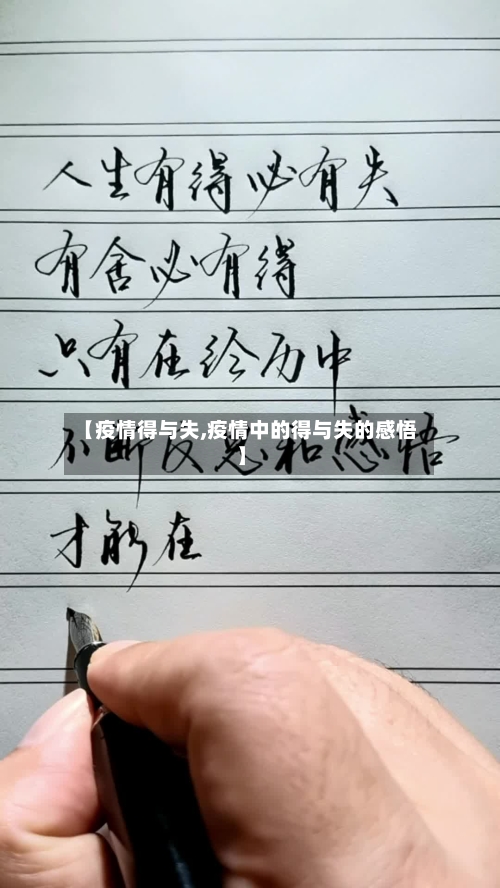 人生有得必有失
有舍必有得
只有在经历中
【疫情得与失,疫情中的得与失的感悟
】
不断反思和感悟
才能在